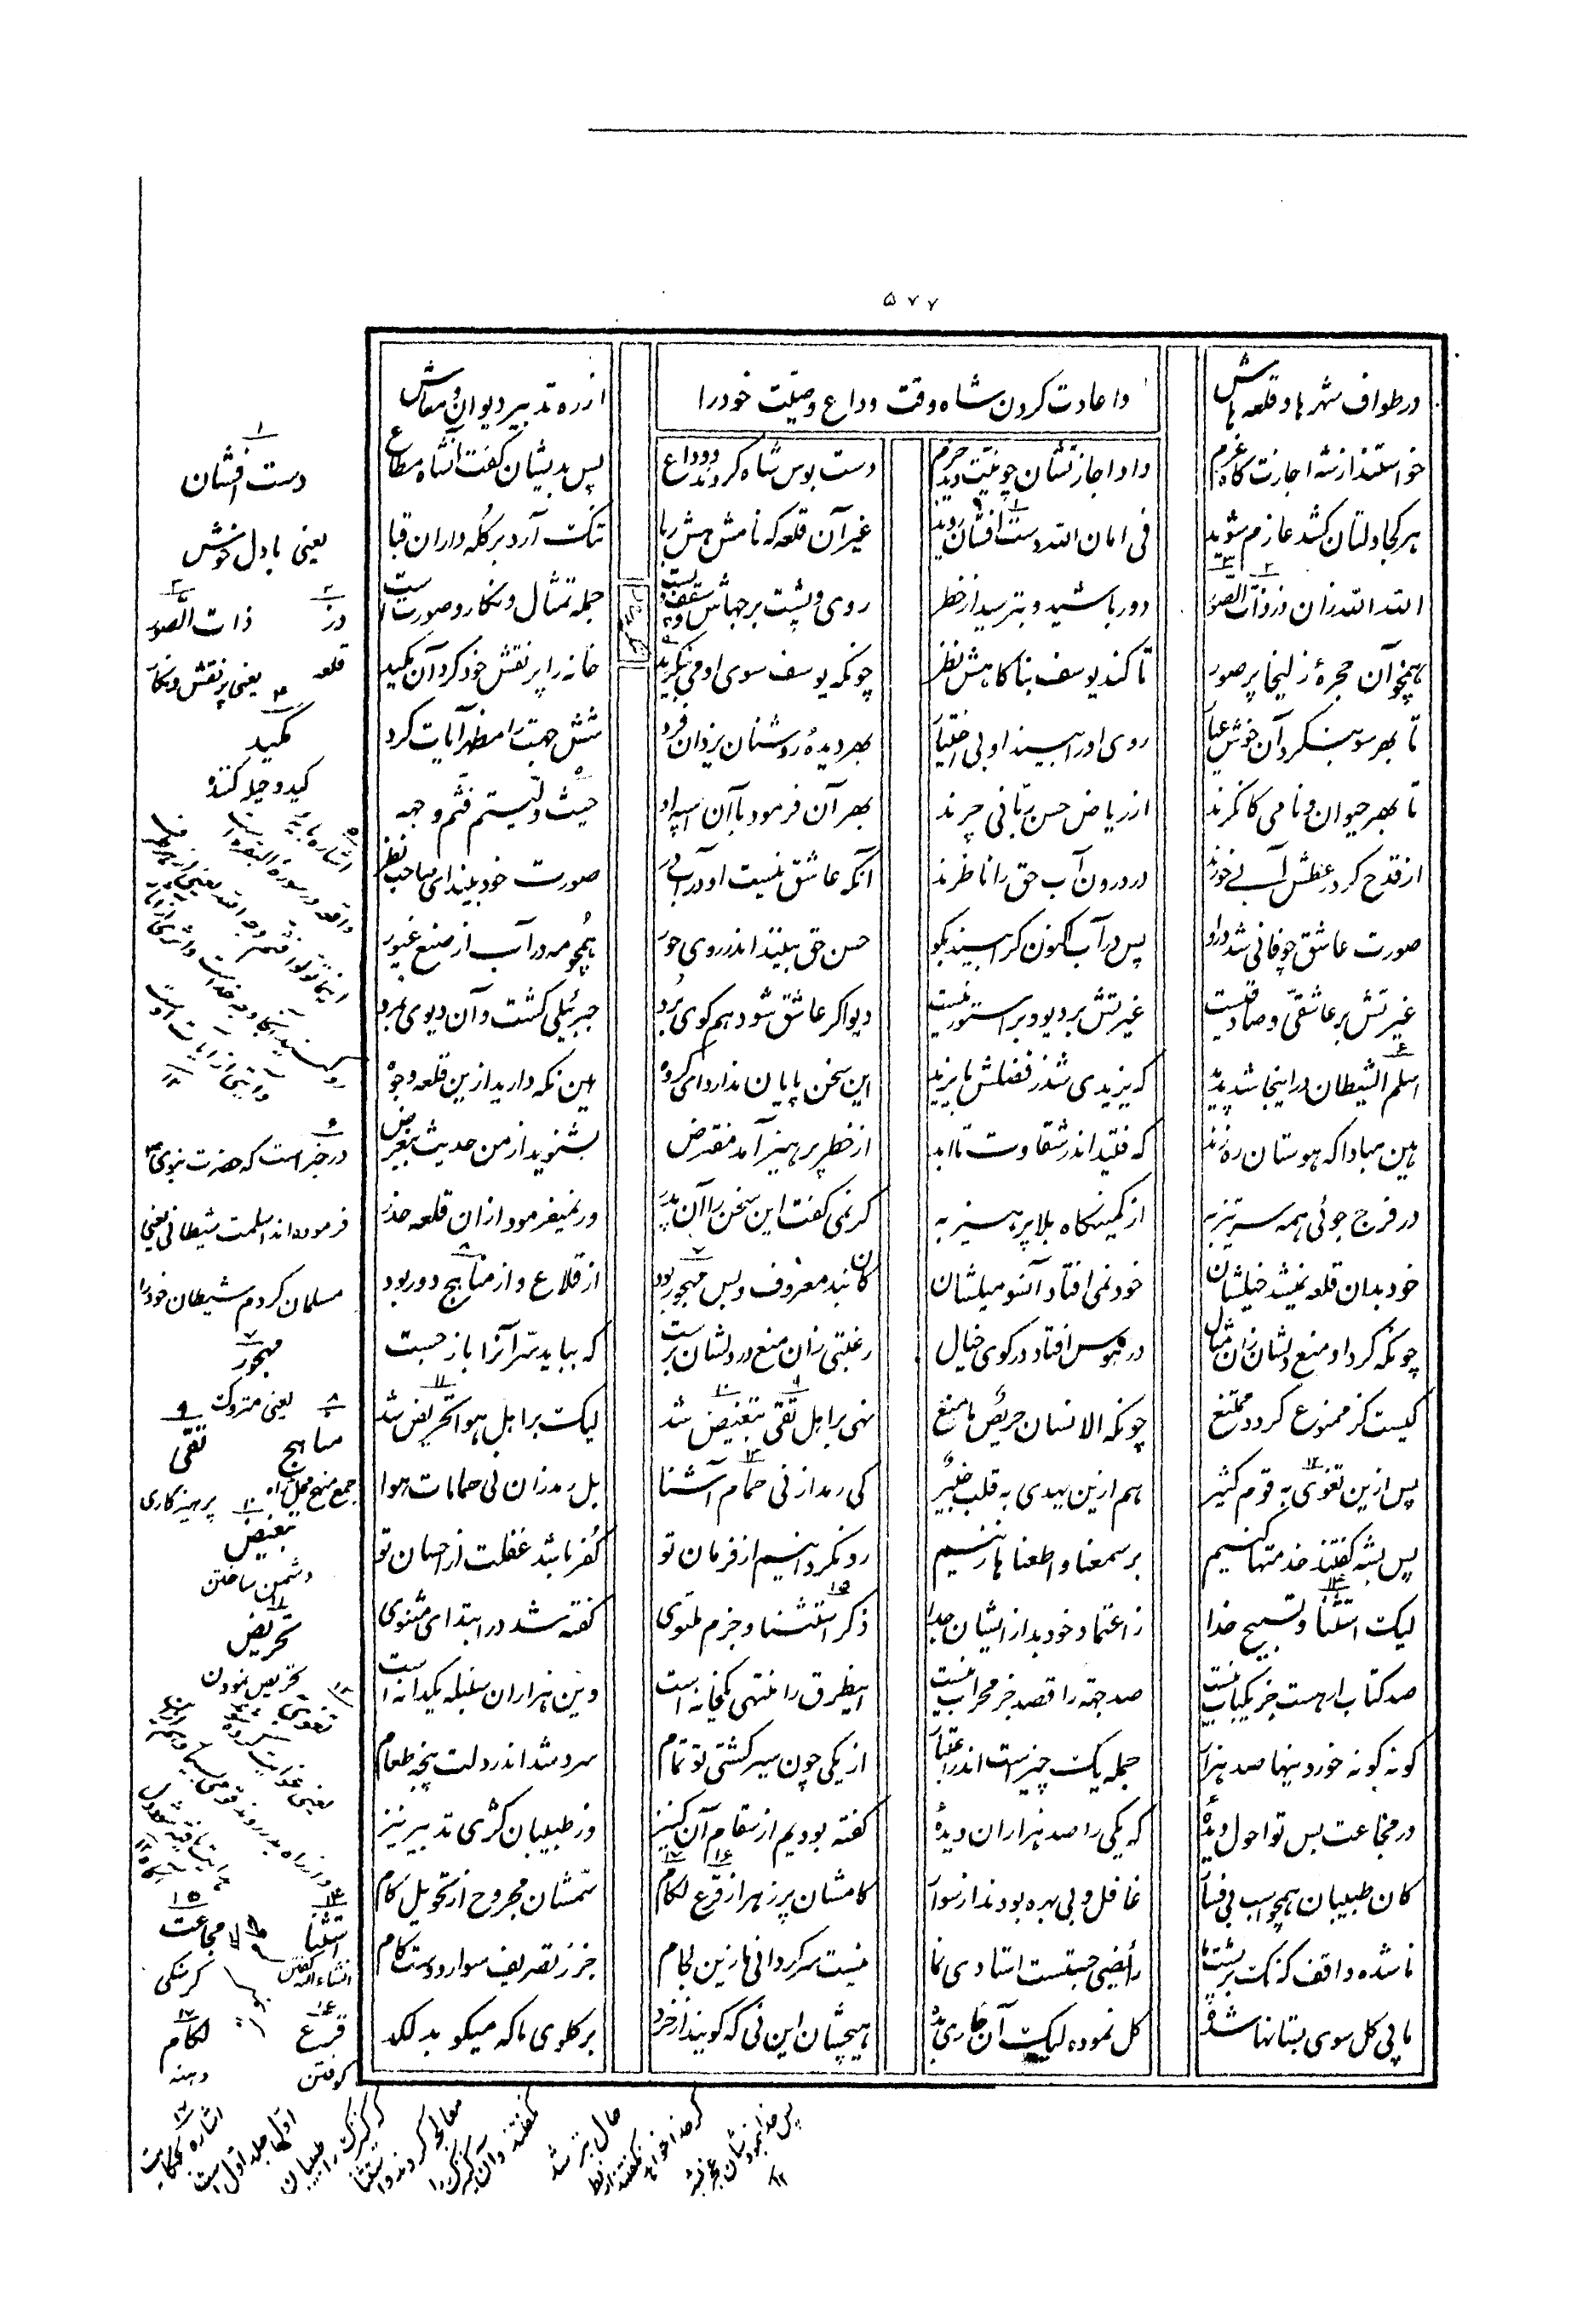 ۵۷۷
در طواف شهرها و قلعه هاش
واعادت کردن شاه وقت وداع وصیّت خود را
از ره تدبیر دیوان و معاش
خواستند از شه اجازت گاه عزم داد اجازتشان چو نیّت دید جزم دست بوس شاه کردند و وداع پس بدیشان گفت آنشاه مطاع
هر کجا دلتان کشد عازم شوید فی امان الله دست افشان روید غیر آن قلعه که نامش هش ربا تنگ آرد بر کُله داران قبا
الله الله زان دز ذات الصّور دور باشید و بترسید از خطر روی و پشت برجهاش و سقف و پست جمله تمثال و نگار و صورت است
همچو آن حجرهٔ زلیخا پر صور تا کند یوسف بناکاهش نظر چونکه یوسف سوی او می ننگرید خانه را پر نقش خود کرد آن مکید
تا بهر سو بنگرد آن خوش عذار روی او را بیند او بی اختیار بهر دیدهٔ روشنان یزدان فرد شش جهت را مظهر آیات کرد
تا بهر حیوان و نامی کانگرند از ریاض حسن ربّانی چرند بهر آن فرمود با آن اسپه او حیث ولّیتم فثم وجهه
از قدح گر در عطش آبی خورند در درون آب حق را ناظرند آنکه عاشق نیست او در آب در صورت خود بیند ای صاحب نظر
صورت عاشق چو فانی شد در او پس در آب اکنون کرا بیند بگو حسن حق بینند اندر روی حور همچو مه در آب از صنع غیور
غیرتش بر عاشقیّ و صادقیست غیرتش بر دیو و بر استور نیست دیو اگر عاشق شود هم گوی بُرد جبرئیلی گشت و آن دیوی بمرد
اسلم الشیطان در اینجا شد پدید که یزیدی شد ز فضلش بایزید این سخن پایان ندارد ای گروه هین نگه دارید ازین قلعه وجوه
هین مبادا که هوستان ره زند که فتید اندر شقاوت تا ابد از خطر پرهیز آمد مفترض بشنوید از من حدیث بیغرض
در فرج جوئی همه سر تیز به از کمینگاه بلا پرهیز به گر نمی گفت این سخن را آن پدر ور نمیفرمود از ان قلعه حذر
خود بدان قلعه نمیشد خیلشان خود نمی افتاد آنسو میلشان کان نبد معروف و بس مهجور بود از قلاع و از مناهج دور بود
چونکه کرد او منع دلشان زان مثال در هوس افتاد در کوی خیال رغبتی زان منع در دلشان برست که بباید سرّ آنرا باز جست
کیست کز ممنوع گردد ممتنع چونکه الانسان حریصٌ ما منع نهی بر اهل تقی تبغیض شد لیک بر اهل هوا تحریض شد
پس ازین تغوی به قوم کثیر هم ازین یهدی به قلب خبیر کی رمد از نی حمام آشنا بل رمد زان نی حمامات هوا
پس بشه گفتند خدمتها کنیم بر سمعنا و اطعنا ها زنیم رو نگردانیم از فرمان تو کفر باشد غفلت از احسان تو
لیک استثنا و تسبیح خدا ز اعتماد خود بد از ایشان جدا ذکر استثنا و جزم ملتوی گفته شد در ابتدای مثنوی
صد کتاب ار هست جز یکباب نیست صد جهة را قصد جز محراب نیست اینطرق را منتهی یکخانه است وین هزاران سنبله یکدانه است
گونه گونه خوردنیها صد هزار جمله یک چیز است اندر اعتبار از یکی چون سیر گشتی تو تمام سرد شد اندر دلت پنجه طعام
در مجاعت بس تو احول دیدهٔ که یکی را صد هزاران دیدهٔ گفته بودیم از سقام آن کنیز وز طبیبان کژی تدبیر نیز
کان طبیبان همچو اسب بی فسار غافل و بی بهره بودند از سوار کامشان پر زهر از قرع لکام سمّشان مجروح از تحویل گام
ناشده واقف که نک بر پشت ما رایضی چستست استادی نما نیست سرگردانی ما زین لجام جز ز تصریف سوار دوستکام
ما پی گل سوی بستانها شده گل نموده لیک آن خاری بده هیچشان این نی که گویند از خرد بر گلوی ما که میکوبد لکد
۱
دست افشان
یعنی با دل خوش
۲
دز
قلعه
۳
ذات الصّور
یعنی پر نقش و نگار
۴
مکید
کید و حیله کننده
۶
در خبر است که حضرت نبوی
فرموده اند اسلمت شیطانی یعنی
مسلمان کردم شیطان خود را
۷
مهجور
یعنی متروک
۸
مناهج
۹
تقی
پرهیزکاری
۱۰
تبغیض
دشمن ساختن
۱۱
تحریض
تحریص نمودن
۱۴
استثنا
انشاءالله گفتن
۱۵
مجاعت
گرسنگی
۱۶
قرع
کوفتن
۱۷
لکام
دهنه